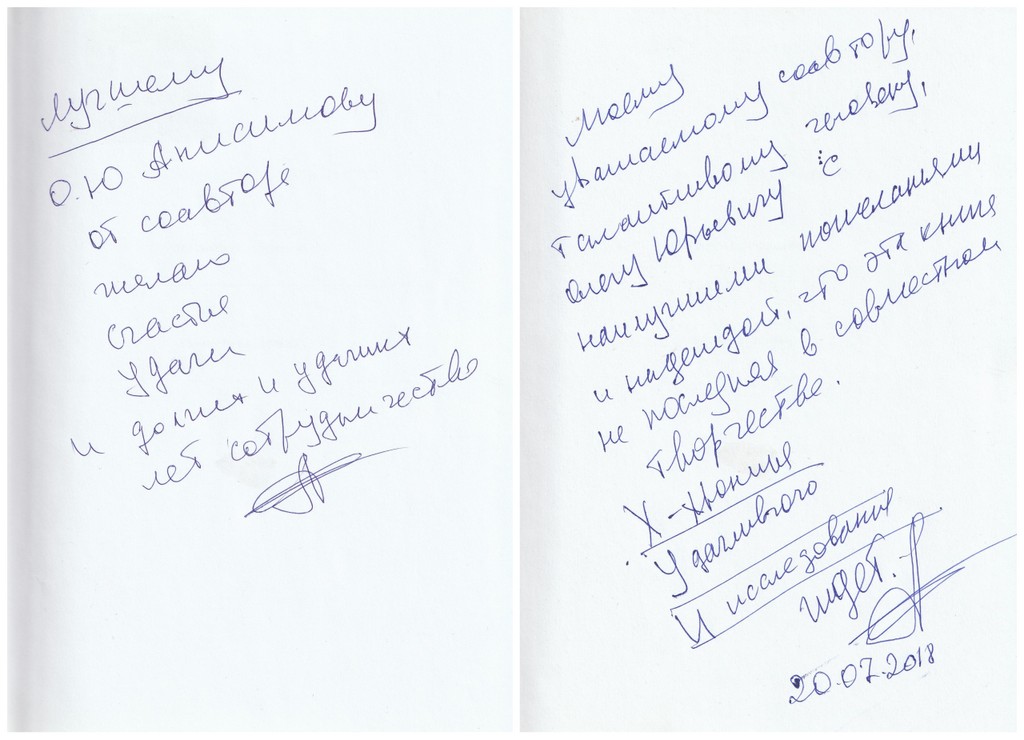 Лучшему
О.Ю Анисимову
от соавтора
желаю
счастья
удачи
и долгих и удачных
лет сотрудничества
Моему
уважаемому соавтору,
талантливому человеку,
Олегу Юрьевичу с
наилучшими пожеланьями
и надеждой, что эта книга
не последняя в совместном
творчестве.
Х-
Удачливого
И исследования
ждет.
20.07.2018